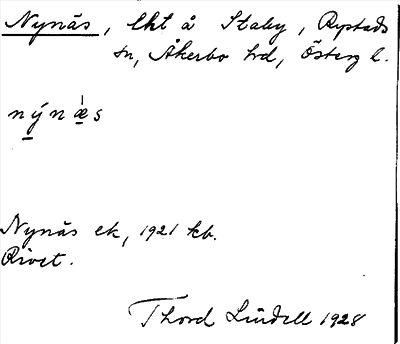 Nynäs, lht å Staby, Rystads
sn, Åkerbo hd, Österg l.
nýnæ̀s
Nynäs ek, 1921 kb.
Rivet.
Thord Lindell 1928